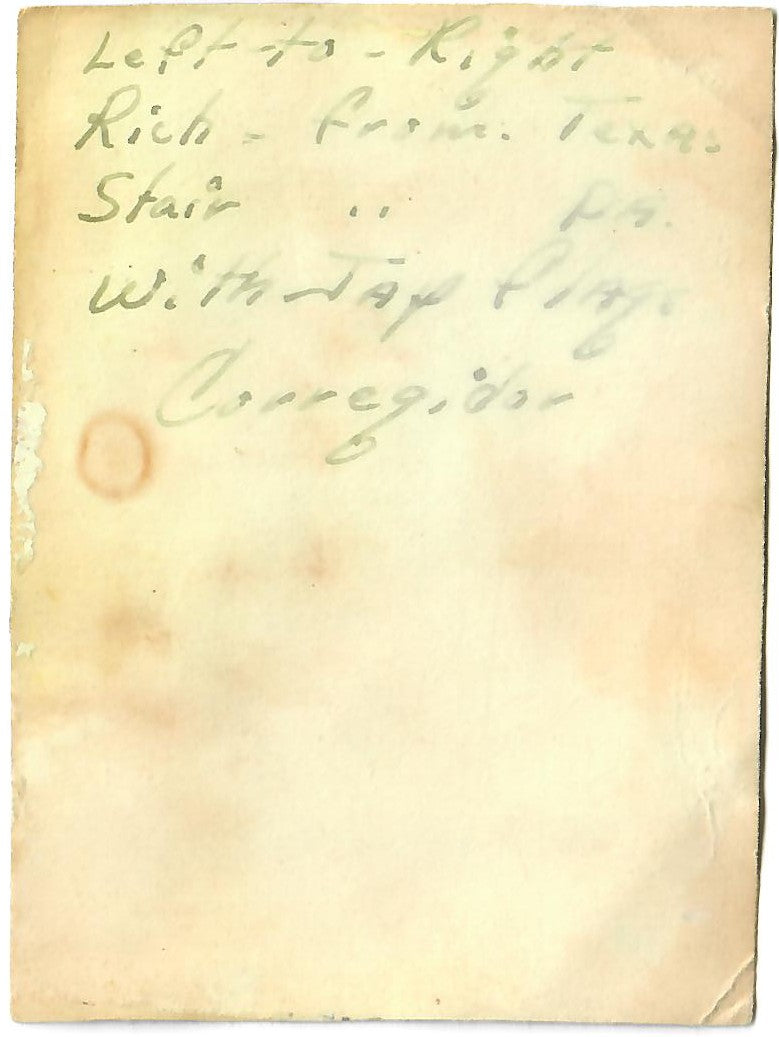 Left-to-Right
Rich - From. Texas
Stair " Pa.
With Jap Flag
Corregidor